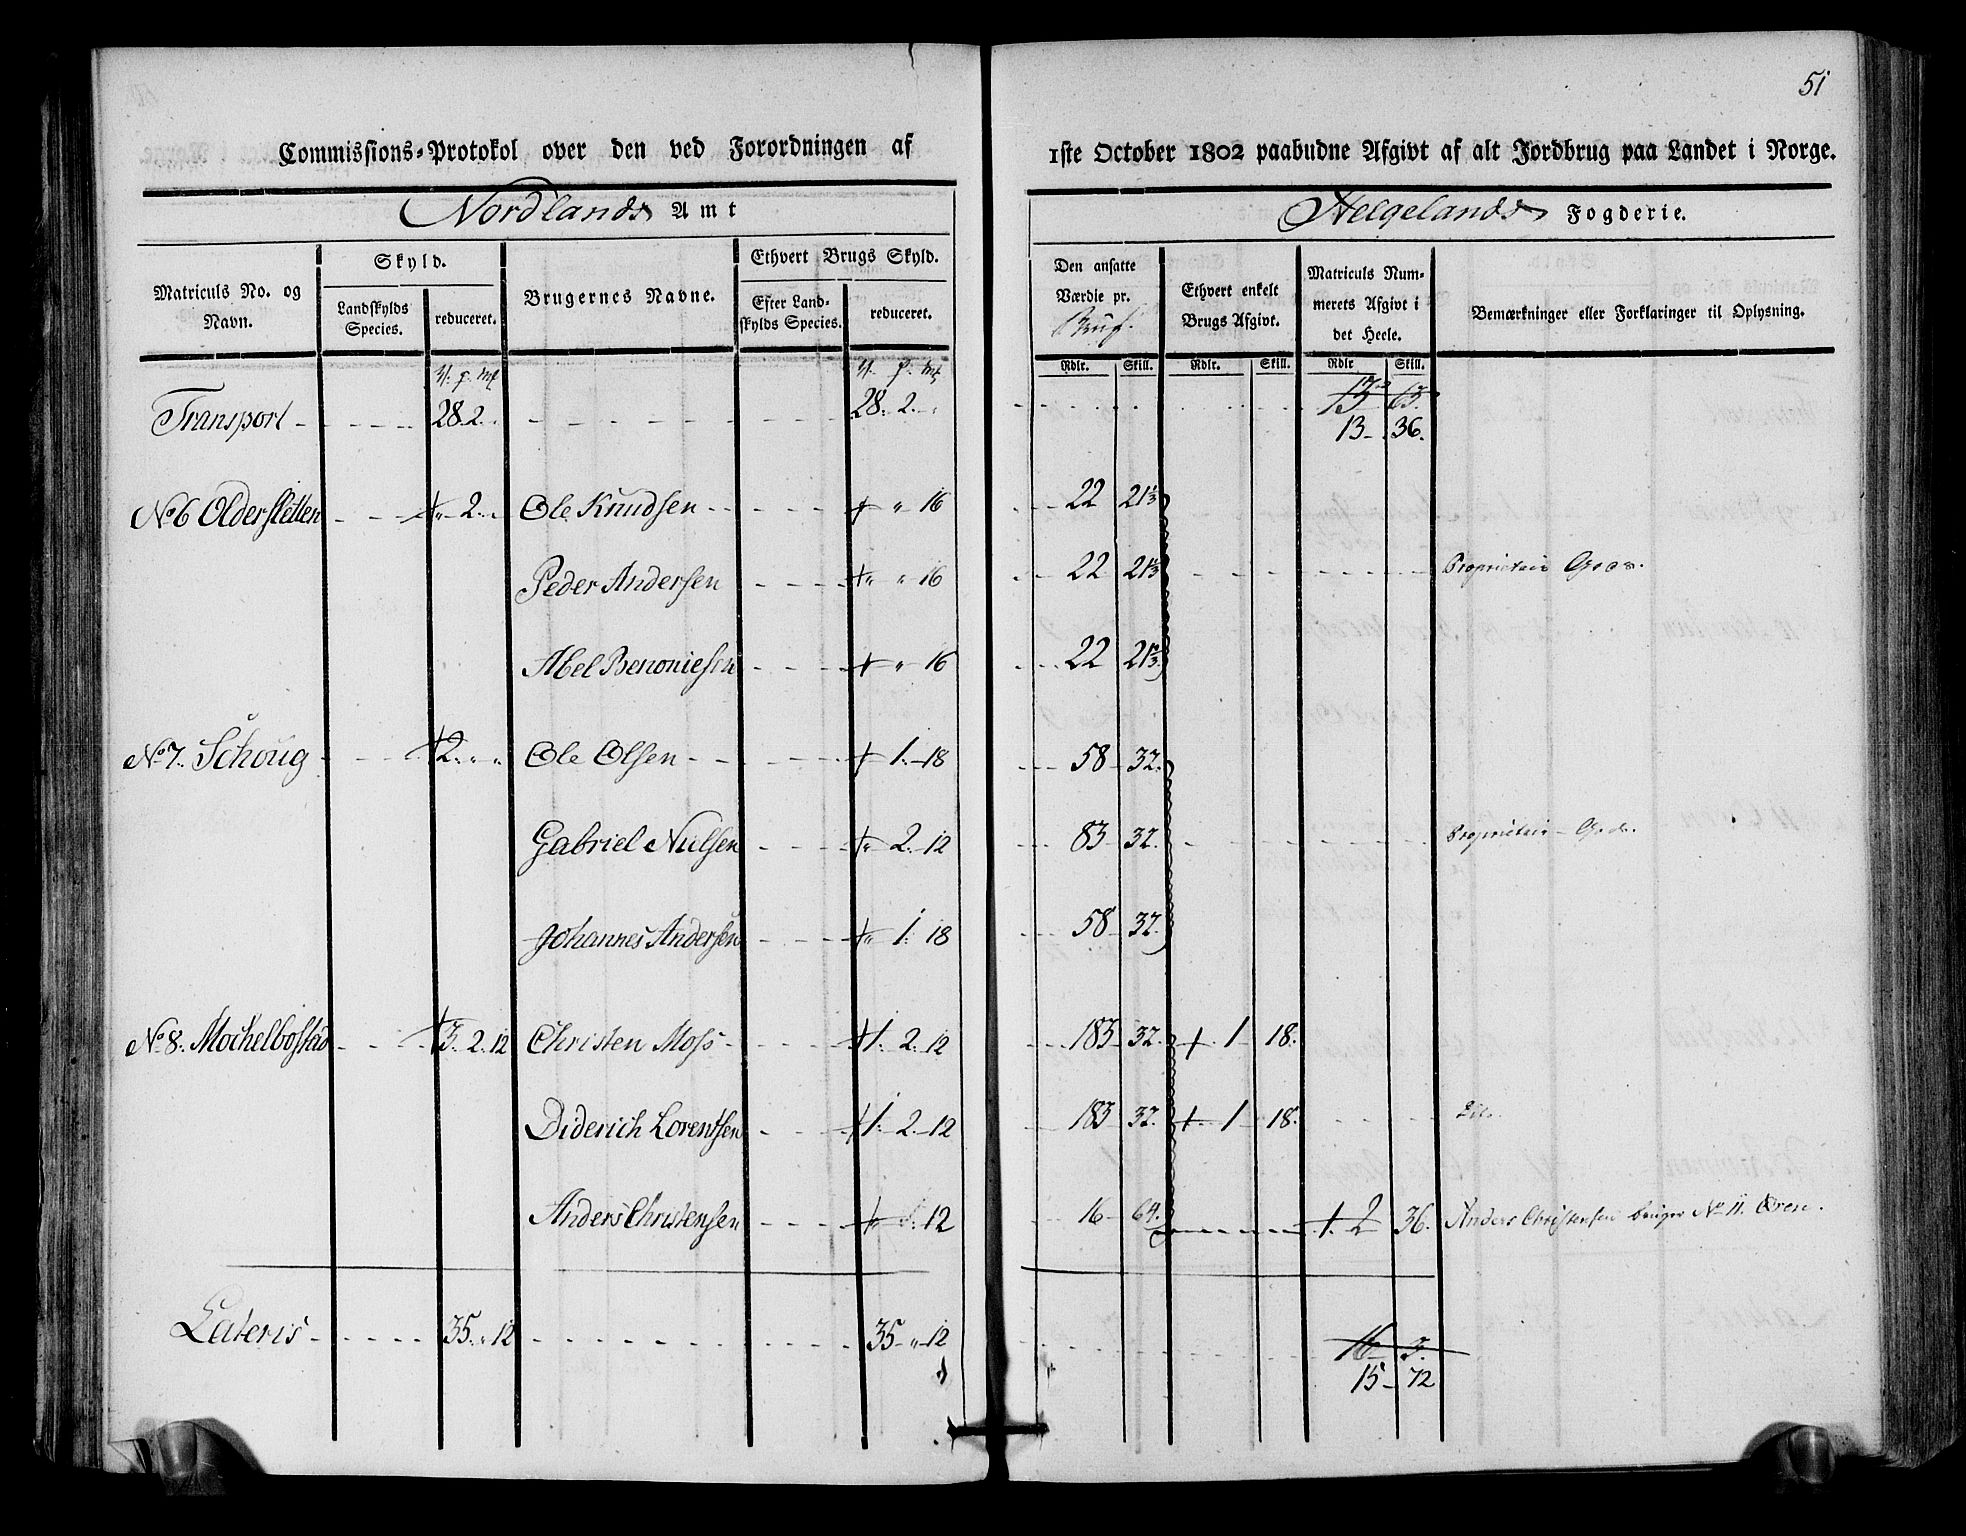 51
Commissions-Protokol over den ved Forordningen af 1ste October 1802 paabudne Afgivt af alt Jordbrug paa Landet i Norge.
Nordlands Amt Helgelands Fogderie.
Matriculs No. og Navn.
Skyld.
Landskylds Species.
reduceret.
Brugernes Navne.
Ethvert Brugs Skyld.
Efter Landskylds Species.
reduceret.
Den ansatte Værdie pr. Brug.
Ethvert enkelt Brugs Afgivt.
Matriculs Nummerets Afgivt i det Heele.
Bemærkninger eller Forklaringer til Oplysning.
Rdlr. Skill. Rdlr. Skill. Rdlr Skill.
V. p. mk V. p. mk
Transport 28. 2. „ 28. 2. „ 13 63.
13 36.
No 6 Olderskletten „ 2. „ Ole Knudsen „ „ 16 22 21⅓
Peder Andersen „ „ 16 22 21⅓ Proprietair Gods.
Abel Benoniesen „ „ 16 22 21⅓
No 7. Schoug 2. „ „ Ole Olsen „ 1. 18 58 32.
Gabriel Nielsen „ 2. 12 83 32. Proprietair Gods.
Johannes Andersen „ 1. 18 58 32.
No 8. Mochelbostad 3. 2. 12 Christen Moss 1. 2. 12 183 32. 1 18.
Diderich Lorentsen 1. 2. 12 183 32. 1 18.
Anders Christensen 12 16 64. 2 36. Anders Christensen bruger No 11. Øren.
Lateris 35. „ 12 35 „ 12 16 3.
15 72